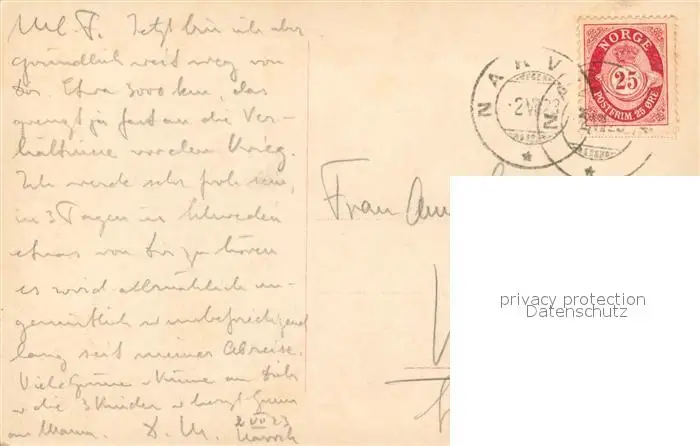 M. l. F. Jetzt bin ich aber
gründlich weit weg von
Dir. Etwa 3000 km, das
grenzt ja fast an die Ver-
hältnisse vor dem Krieg.
Ich werde sehr froh sein,
in 3 Tagen in Schweden
etwas von Dir zu hören
es wird allmählich un-
gemütlich u unbefriedigend
lang seit meiner Abreise.
Viele Grüsse u Küsse an Dich
u die 3 Kinder u herzl Gruss
an Mama. D. M. 2 VII 23
Narvik
NORGE
25
POSTFRIM. 25 ØRE
NARVIK
2 VII 23
Frau
privacy protection
Datenschutz